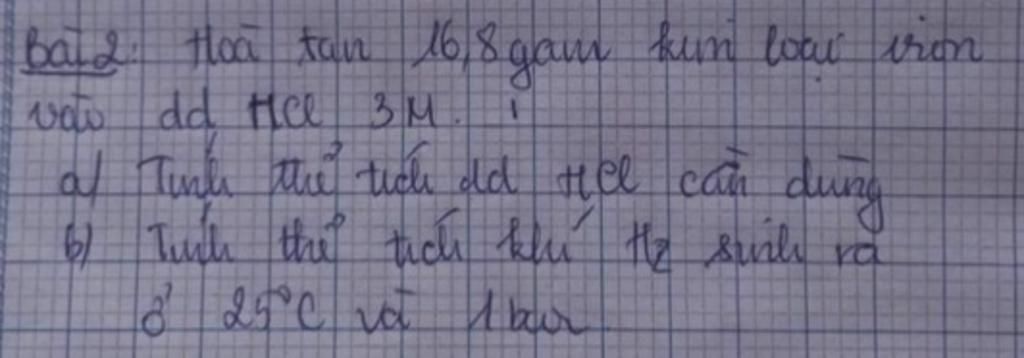 Bài 2: Hoà tan 16,8 gam kim loại iron
vào dd HCl 3M.
a) Tính thể tích dd HCl cần dùng
b) Tính thể tích khí H2 sinh ra
ở 25°C và 1 bar